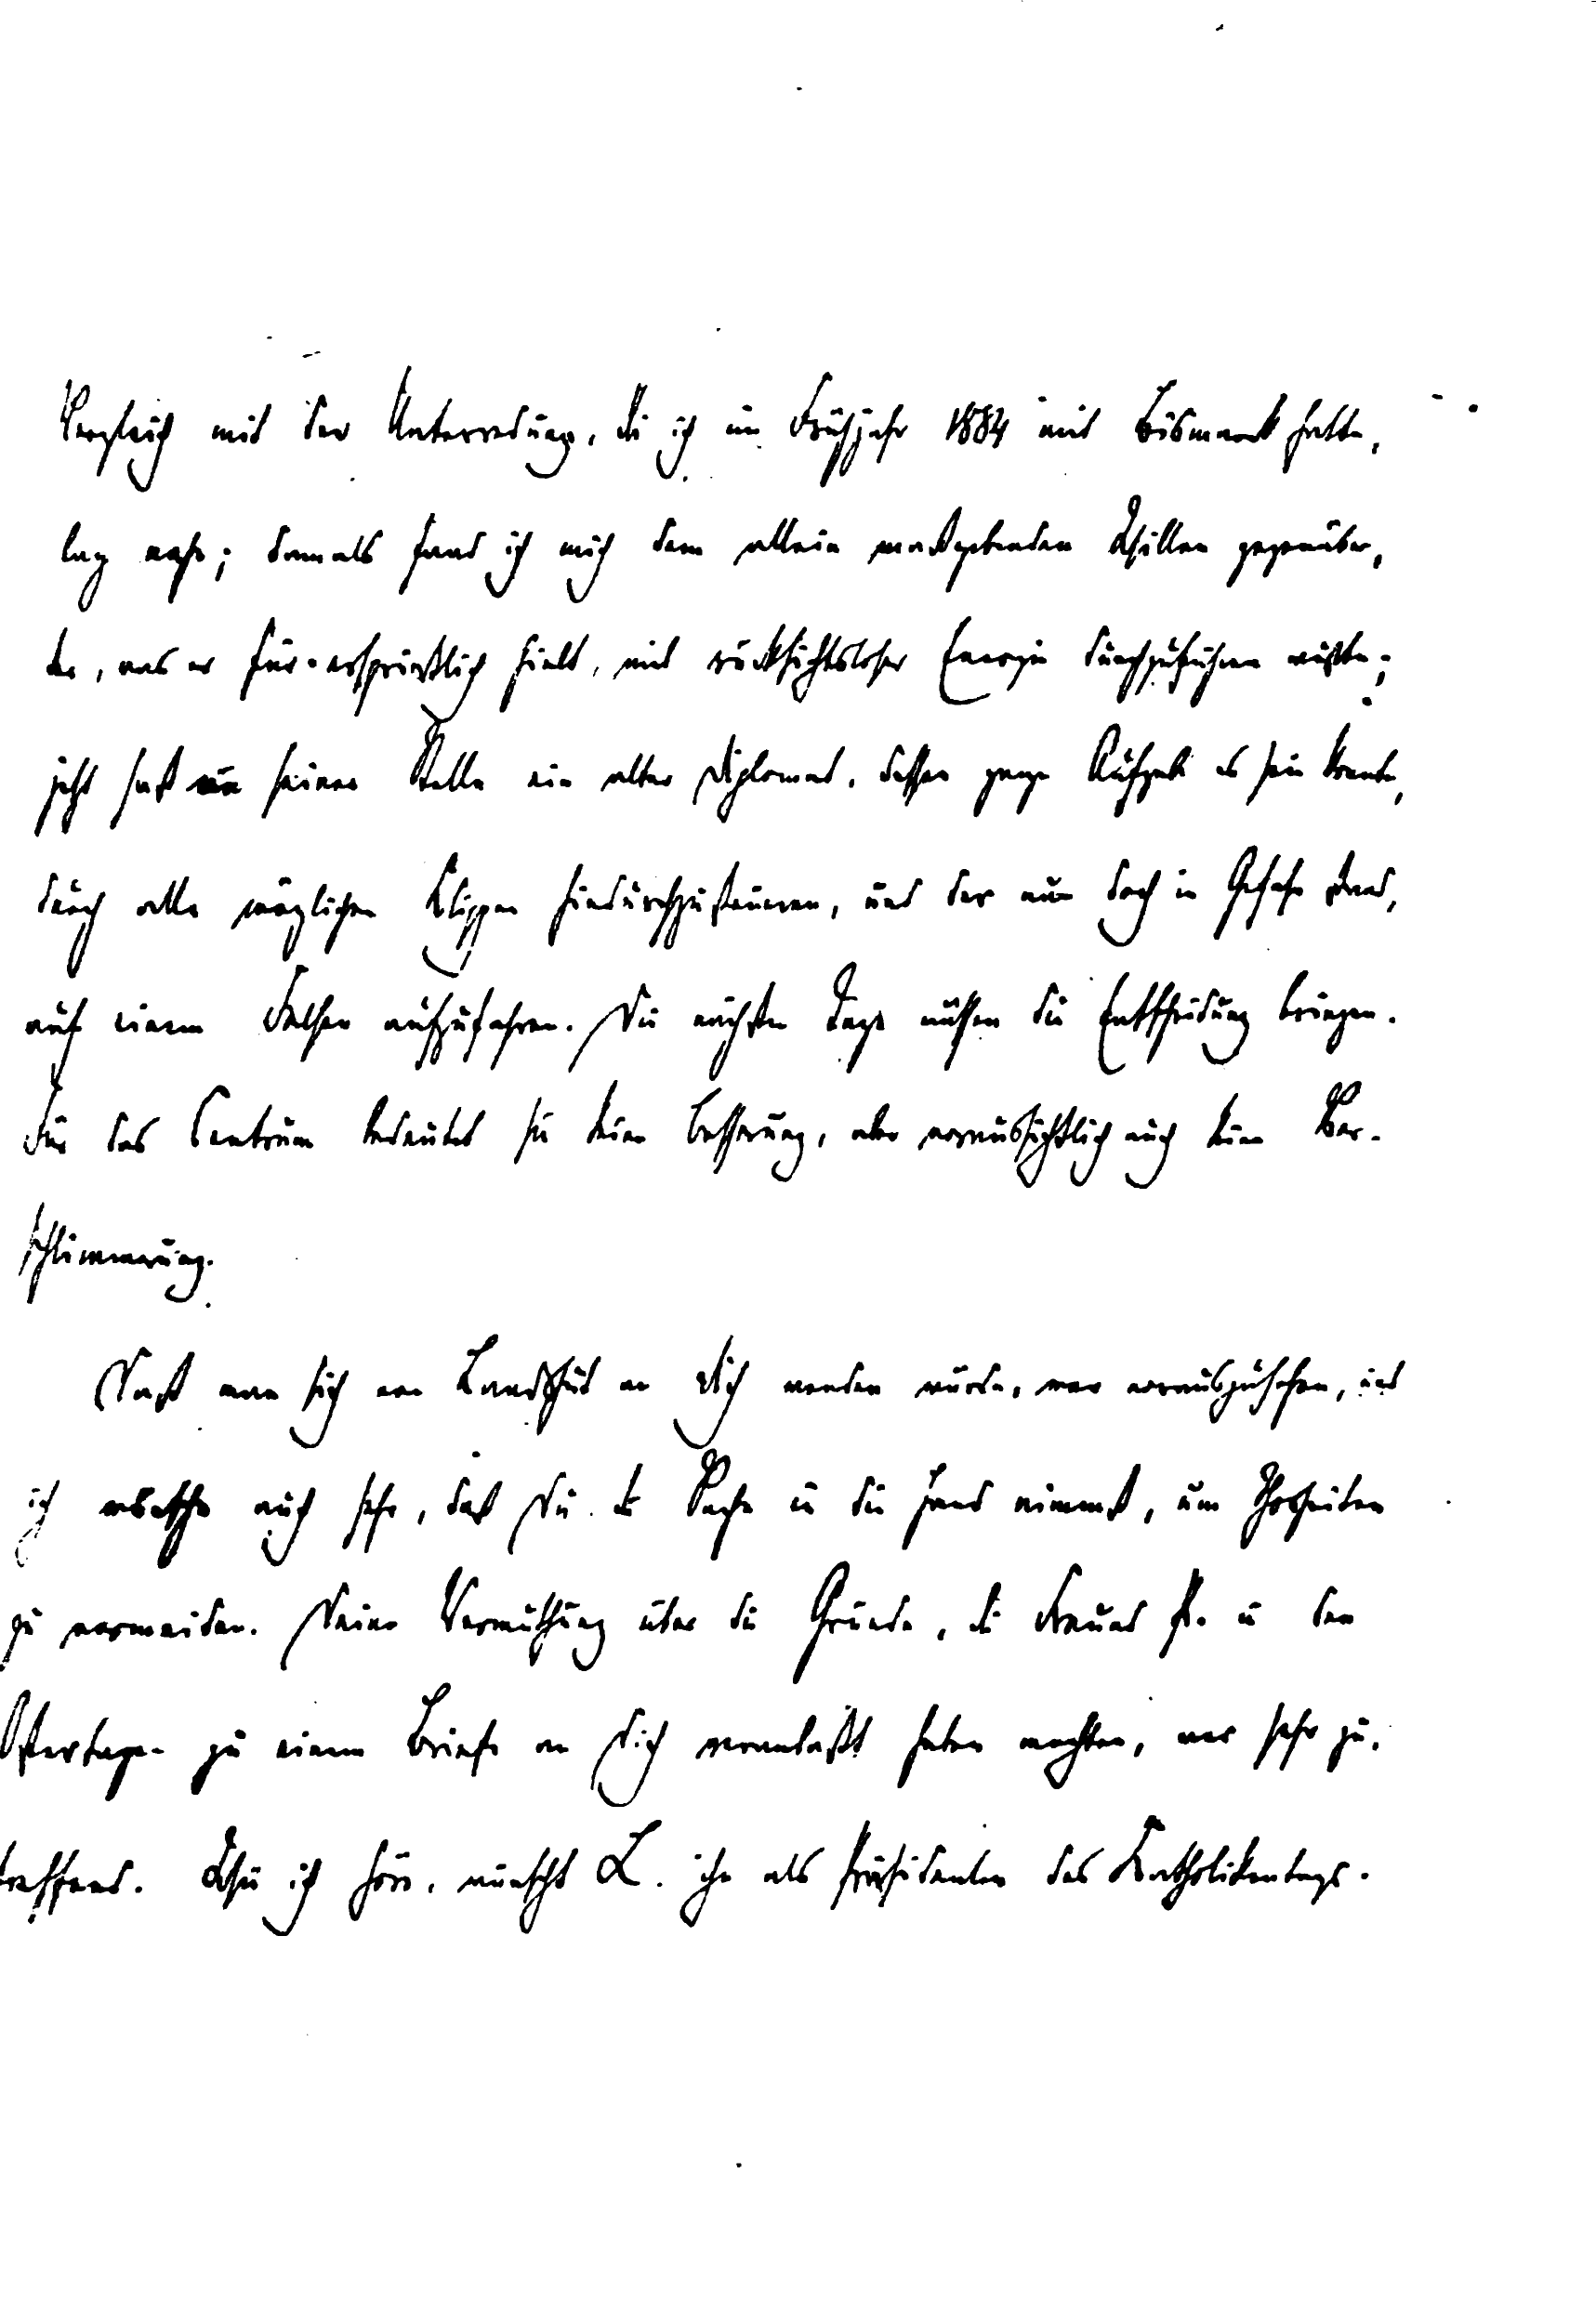 Vergleich mit der Unterredung, die ich im Frühjahr 1884 mit Bismarck hatte,
lag nahe; damals fand ich mich dem allein maßgebenden Willen gegenüber,
der, was er für ersprießlich hielt, mit rücksichtsloser Energie durchzuführen wußte;
jetzt saß an seiner Stelle ein alter Diplomat, dessen ganze Aufgabe es sein konnte,
durch alle möglichen Klippen hindurchzusteuern, und der nun doch in Gefahr stand,
auf einem Felsen aufzufahren. Die nächsten Tage müssen die Entscheidung bringen.
Für das Centrum bedeutet sie keine Besserung, aber voraussichtlich auch keine Ver-
schlimmerung.
Daß man sich von Landshut an Dich wenden würde, war vorauszusehen, und
ich wünsche auch sehr, daß Du die Sache in die Hand nimmst, um Thorheiten
zu vermeiden. Deine Vermuthung über die Gründe, die Freund P. in den
Ostertagen zu einem Briefe an Dich veranlaßt haben mochten, war sehr zu-
treffend. Wie ich höre, wünscht L. ihn als Präsidenten des Katholikentags.